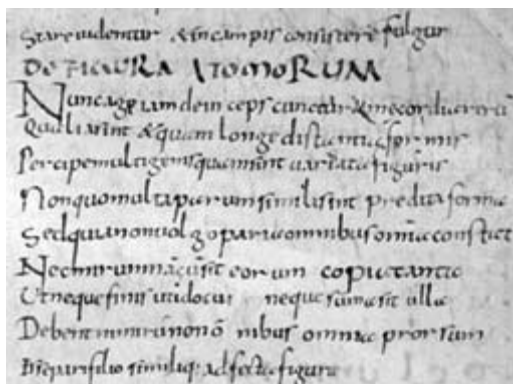 Stare uidentur & in campis consistere fulgur
DE FIGURA ATOMORUM
Nunc age iam dein ceps cunctar
Qualia sint & quam longe distantia formis
Percipe multigenis quam sint uariata figuris
Non quo multa parum simili sint predita forma
Sed quia non uolgo paria omnibus omnia constet
Nec mirum sit eorum copia tantia
Ut neque finis uti docui neque suma sit ulla
Debent nimirū non ō nibus omnia prorsum
pari filo similiq; adfecta figura